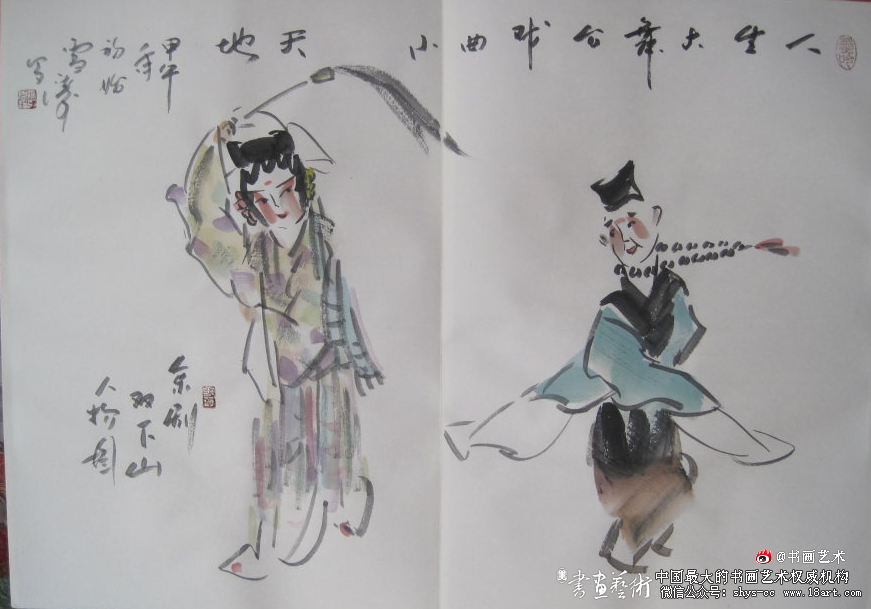 人生大舞台戏曲小天地
甲午年
雪涛
写
京剧
双下山
人物图
@书画艺术
書畫藝術
中国最大的书画艺术权威机构
微信公众号：shys-cc www.18art.com